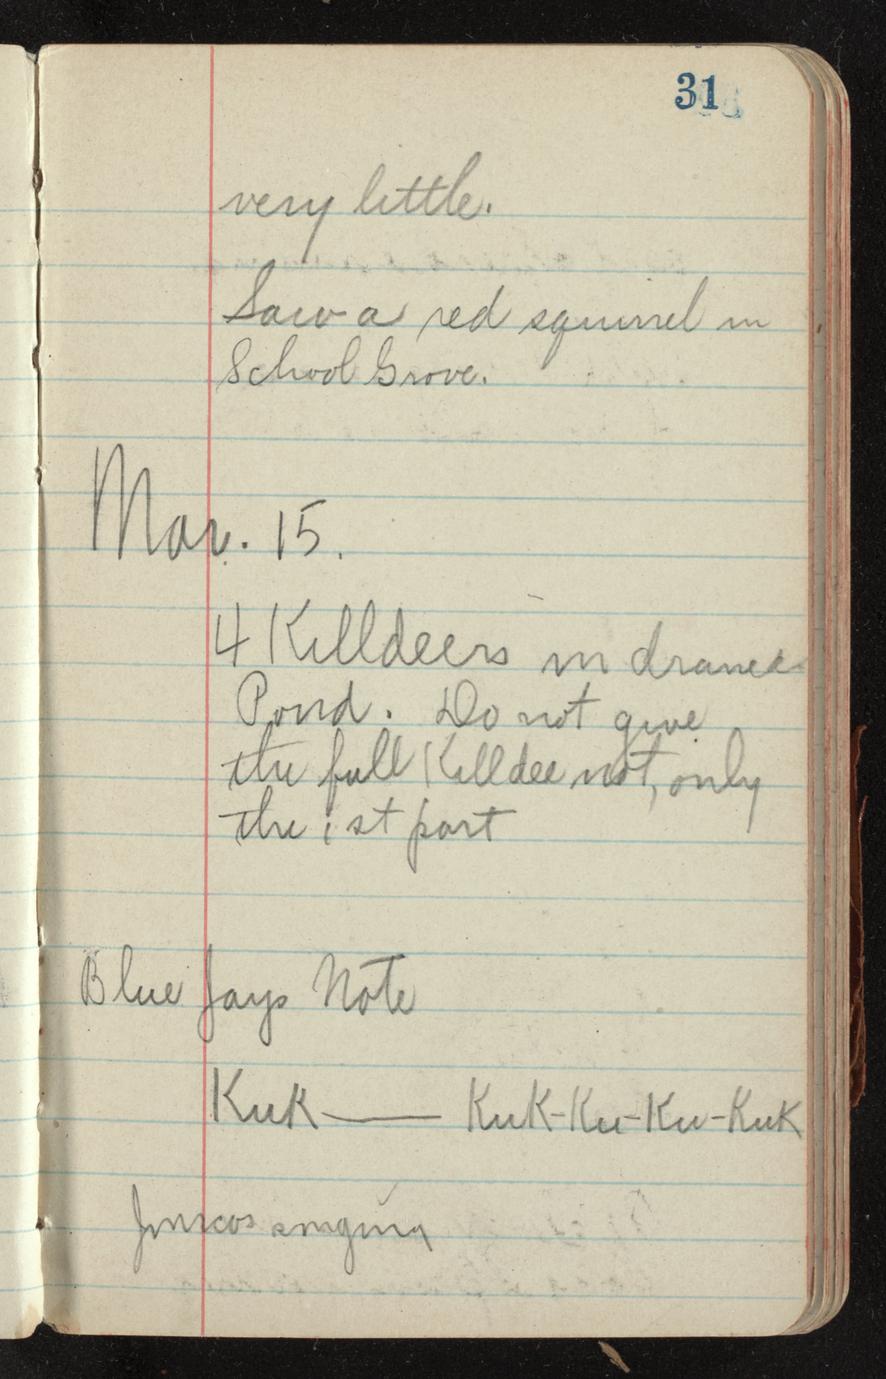 31
very little.
Saw a red squirrel in
School Grove.
Mar. 15.
4 Killdeers in
Pond. Do not give
the full Killdee not, only
the 1st part
Blue Jays Note
Kuk — Kuk-Ku-Ku-Kuk
Juncos singing